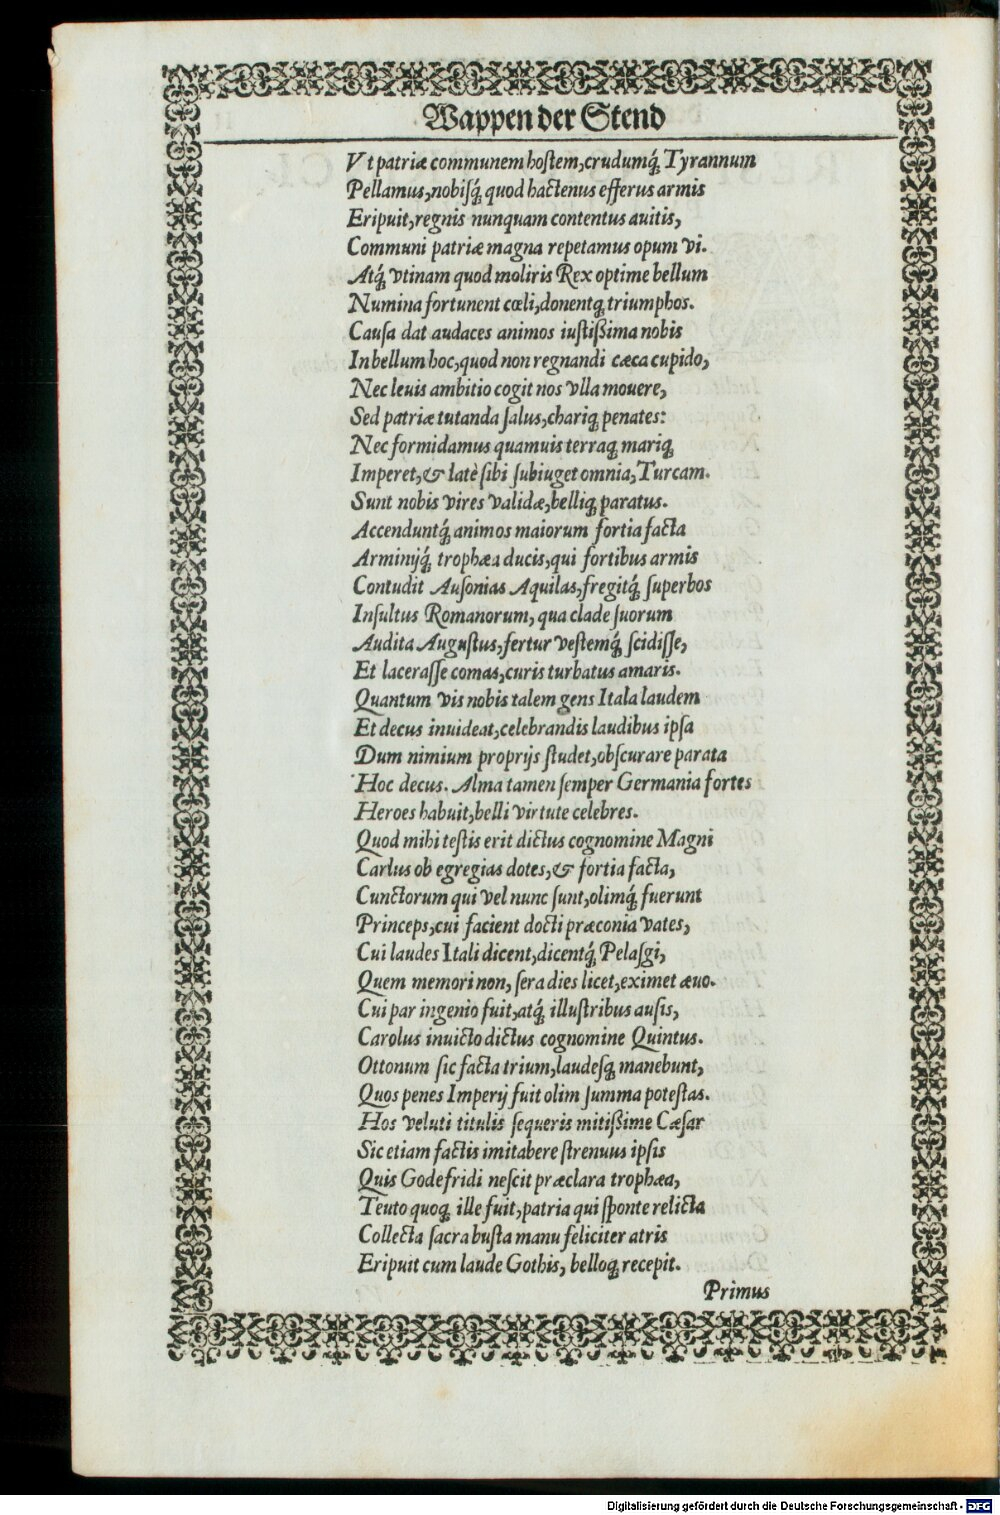 Wappen der Stend
Vt patriæ communem hoſtem, crudumq́; Tyrannum
Pellamus, nobiſq́; quod hactenus efferus armis
Eripuit, regnis nunquam contentus auitis,
Communi patriæ magna repetamus opum vi.
Atq́; vtinam quod moliris Rex optime bellum
Numina fortunent cœli, donentq; triumphos.
Cauſa dat audaces animos iuſtißima nobis
In bellum hoc, quod non regnandi cæca cupido,
Nec leuis ambitio cogit nos vlla mouere,
Sed patriæ tutanda ſalus, chariq; penates:
Nec formidamus quamuis terraq; mariq;
Imperet, & latè ſibi ſubiuget omnia, Turcam.
Sunt nobis vires validæ, belliq; paratus.
Accenduntq́; animos maiorum fortia facta
Arminijq́; trophæa ducis, qui fortibus armis
Contudit Auſonias Aquilas, fregitq́; ſuperbos
Inſultus Romanorum, qua clade ſuorum
Audita Auguſtus, fertur veſtemq́; ſcidiſſe,
Et laceraſſe comas, curis turbatus amaris.
Quantum vis nobis talem gens Itala laudem
Et decus inuideat, celebrandis laudibus ipſa
Dum nimium proprijs ſtudet, obſcurare parata
Hoc decus. Alma tamen ſemper Germania fortes
Heroes habuit, belli virtute celebres.
Quod mihi teſtis erit dictus cognomine Magni
Carlus ob egregias dotes, & fortia facta,
Cunctorum qui vel nunc ſunt, olimq́; fuerunt
Princeps, cui facient docti præconia vates,
Cui laudes Itali dicent, dicentq́; Pelaſgi,
Quem memori non, ſera dies licet, eximet æuo.
Cui par ingenio fuit, atq́; illuſtribus auſis,
Carolus inuicto dictus cognomine Quintus.
Ottonum ſic facta trium, laudeſq; manebunt,
Quos penes Imperij fuit olim ſumma poteſtas.
Hos veluti titulis ſequeris mitißime Cæſar
Sic etiam factis imitabere ſtrenuus ipſis
Quis Godefridi neſcit præclara trophæa,
Teuto quoq; ille fuit, patria qui ſponte relicta
Collecta ſacra buſta manu feliciter atris
Eripuit cum laude Gothis, belloq; recepit.
Primus
Digitalisierung gefördert durch die Deutsche Forschungsgemeinschaft - DFG